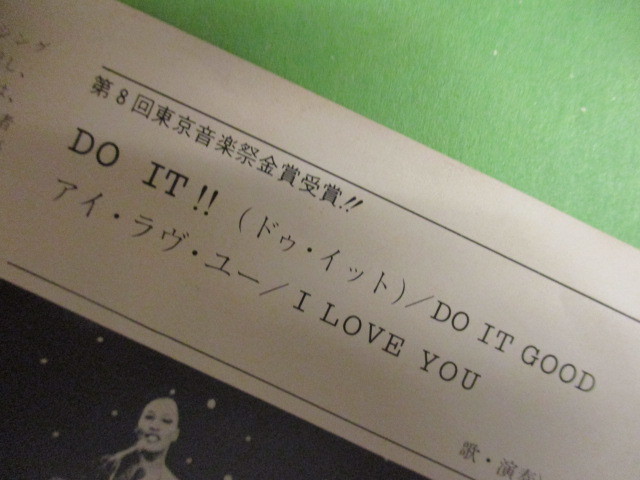 シング
し、
は、
者
第8回東京音楽祭金賞受賞!!
DO IT!! (ドゥ・イット)/DO IT GOOD
アイ・ラヴ・ユー/I LOVE YOU
歌・演奏